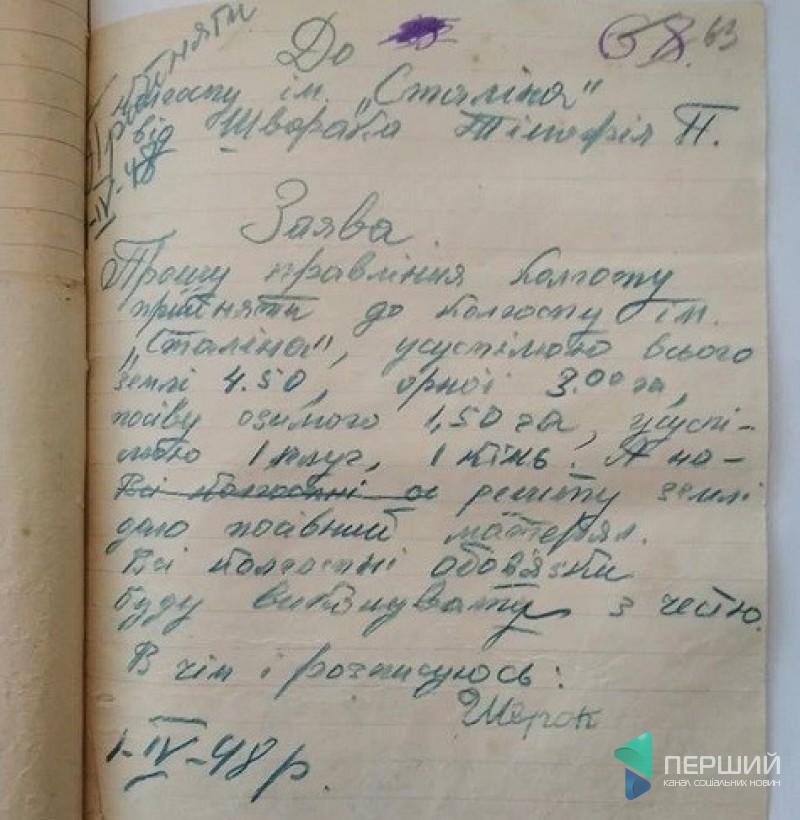 Прийняти
1-IV-48
68. 63
До
колгоспу ім. „Сталіна"
від Шворака Тімофія П.
Заява
Прошу правління колгоспу
прийняти до колгоспу ім.
„Сталіна", усуспілюю всього
землі 4.50, орної 3.00 га,
посіву озимого 1,50 га, усуспі-
люю 1 плуг, 1 кінь. А на
Всі колгоспні о решту землі
даю посівний матеріял.
Всі колгоспні обов'язки
буду виконувати з честю.
В чім і розписуюсь:
1-IV-48 р.
ПЕРШИЙ
КАНАЛ СОЦІАЛЬНИХ НОВИН